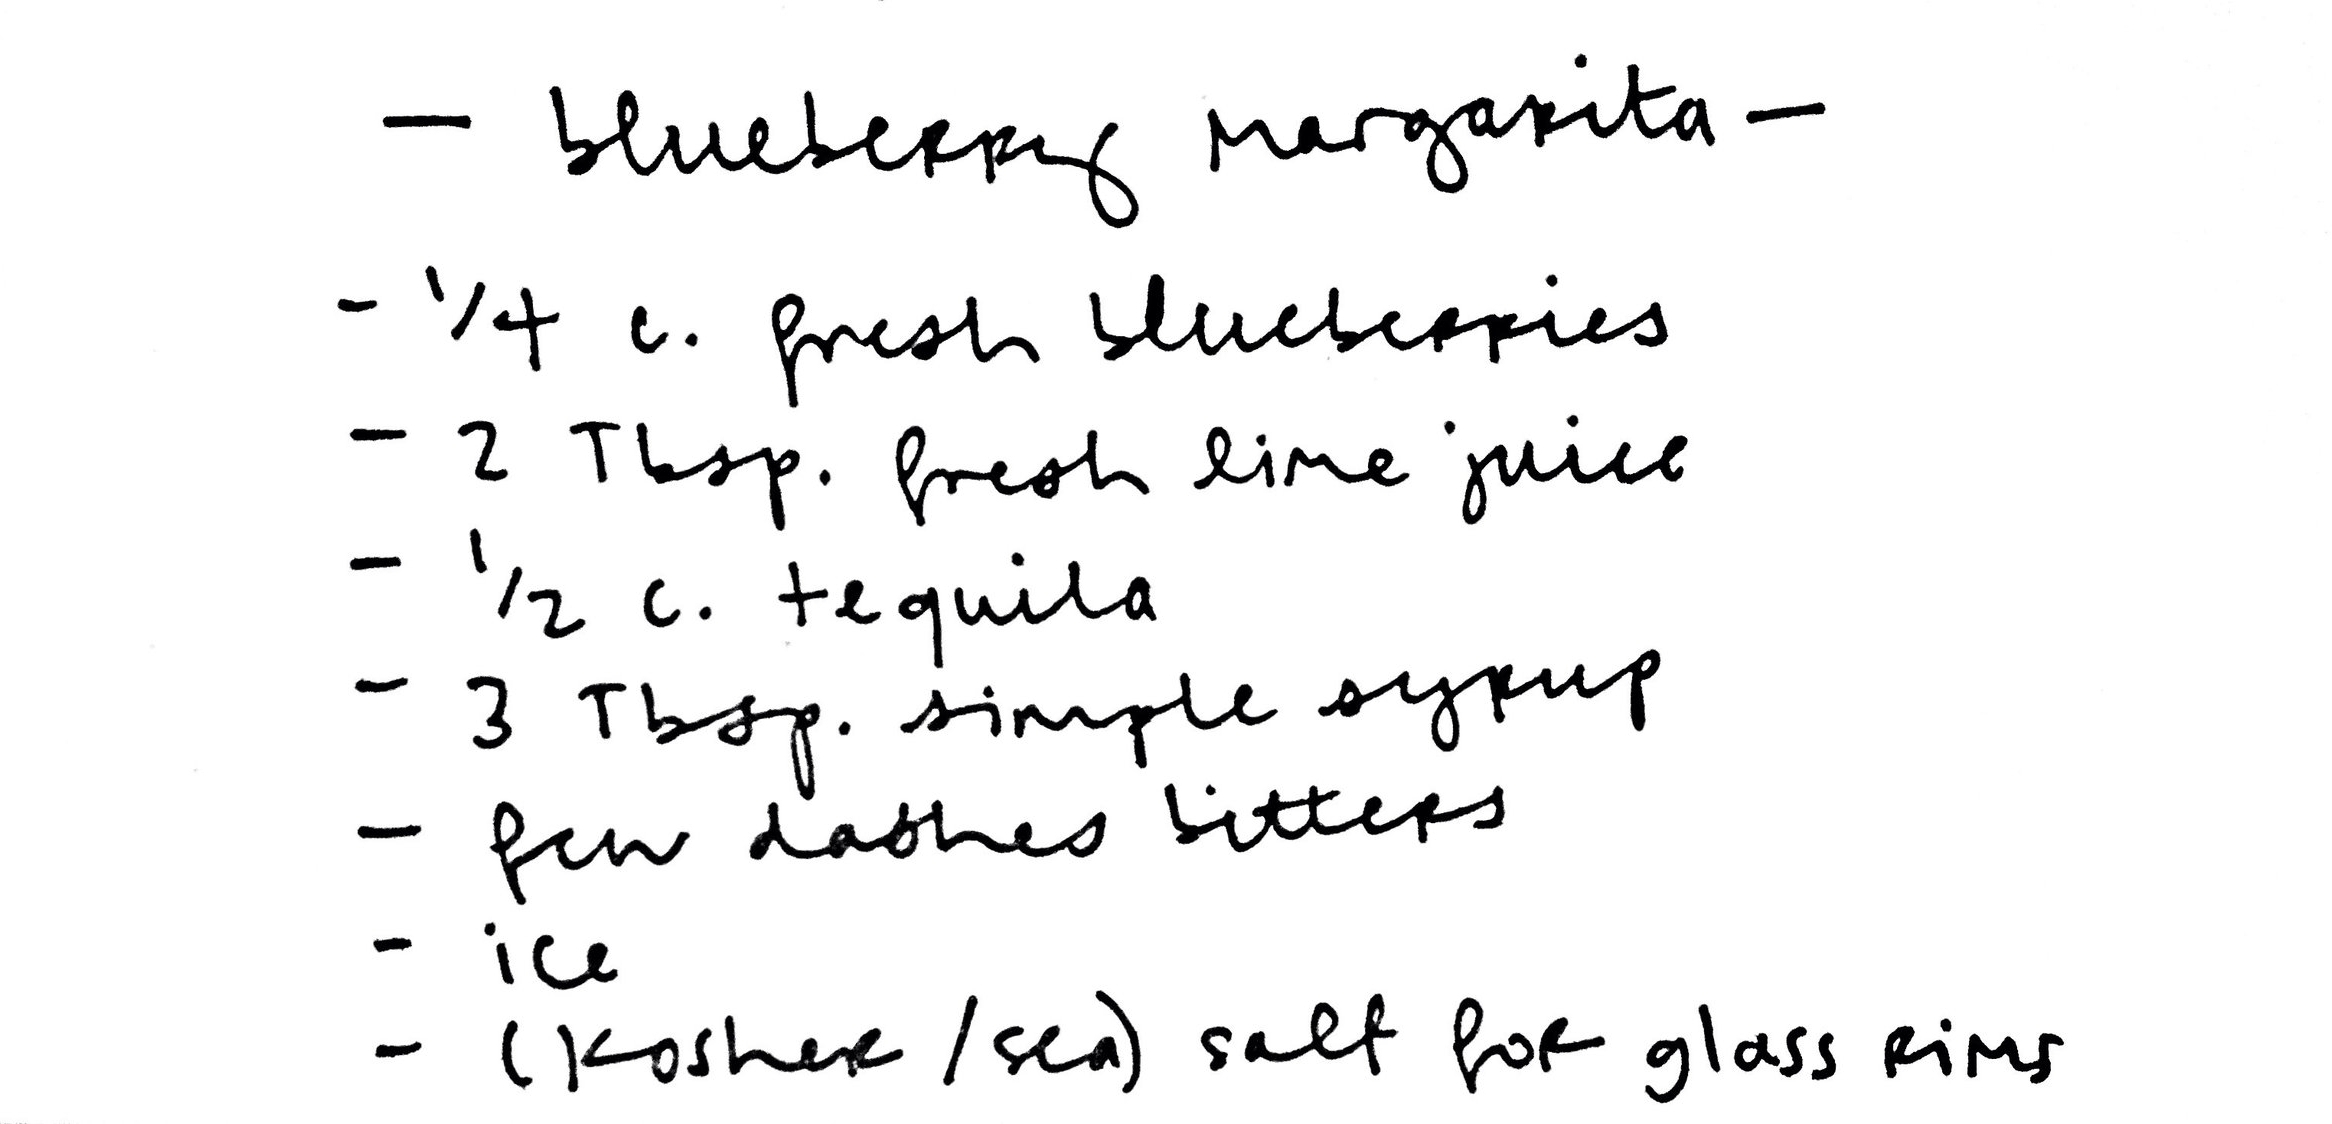 — blueberry margarita —
- 1/4 c. fresh blueberries
- 2 Tbsp. fresh lime juice
- 1/2 c. tequila
- 3 Tbsp. simple syrup
- few dashes bitters
- ice
- (kosher/sea) salt for glass rims